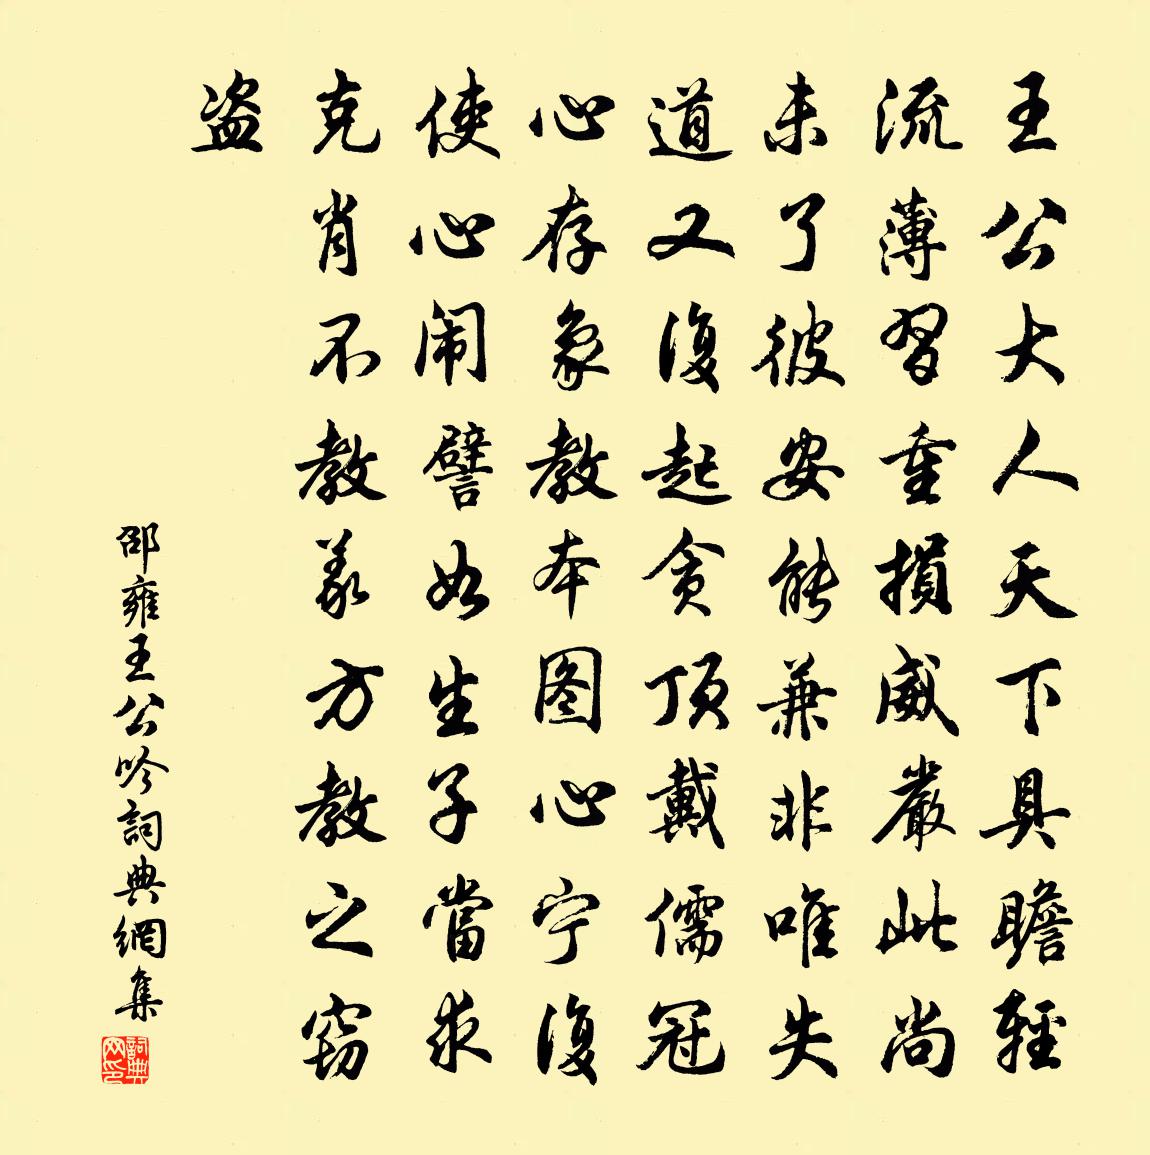 王公大人天下具瞻輕
流薄習重損威嚴此尚
未了彼安能兼非唯失
道又復起贪顶戴儒冠
心存象教本图心宁復
使心闹譬如生子當求
克肖不教義方教之窃
盗
邵雍王公吟詞典網集
詞典网印